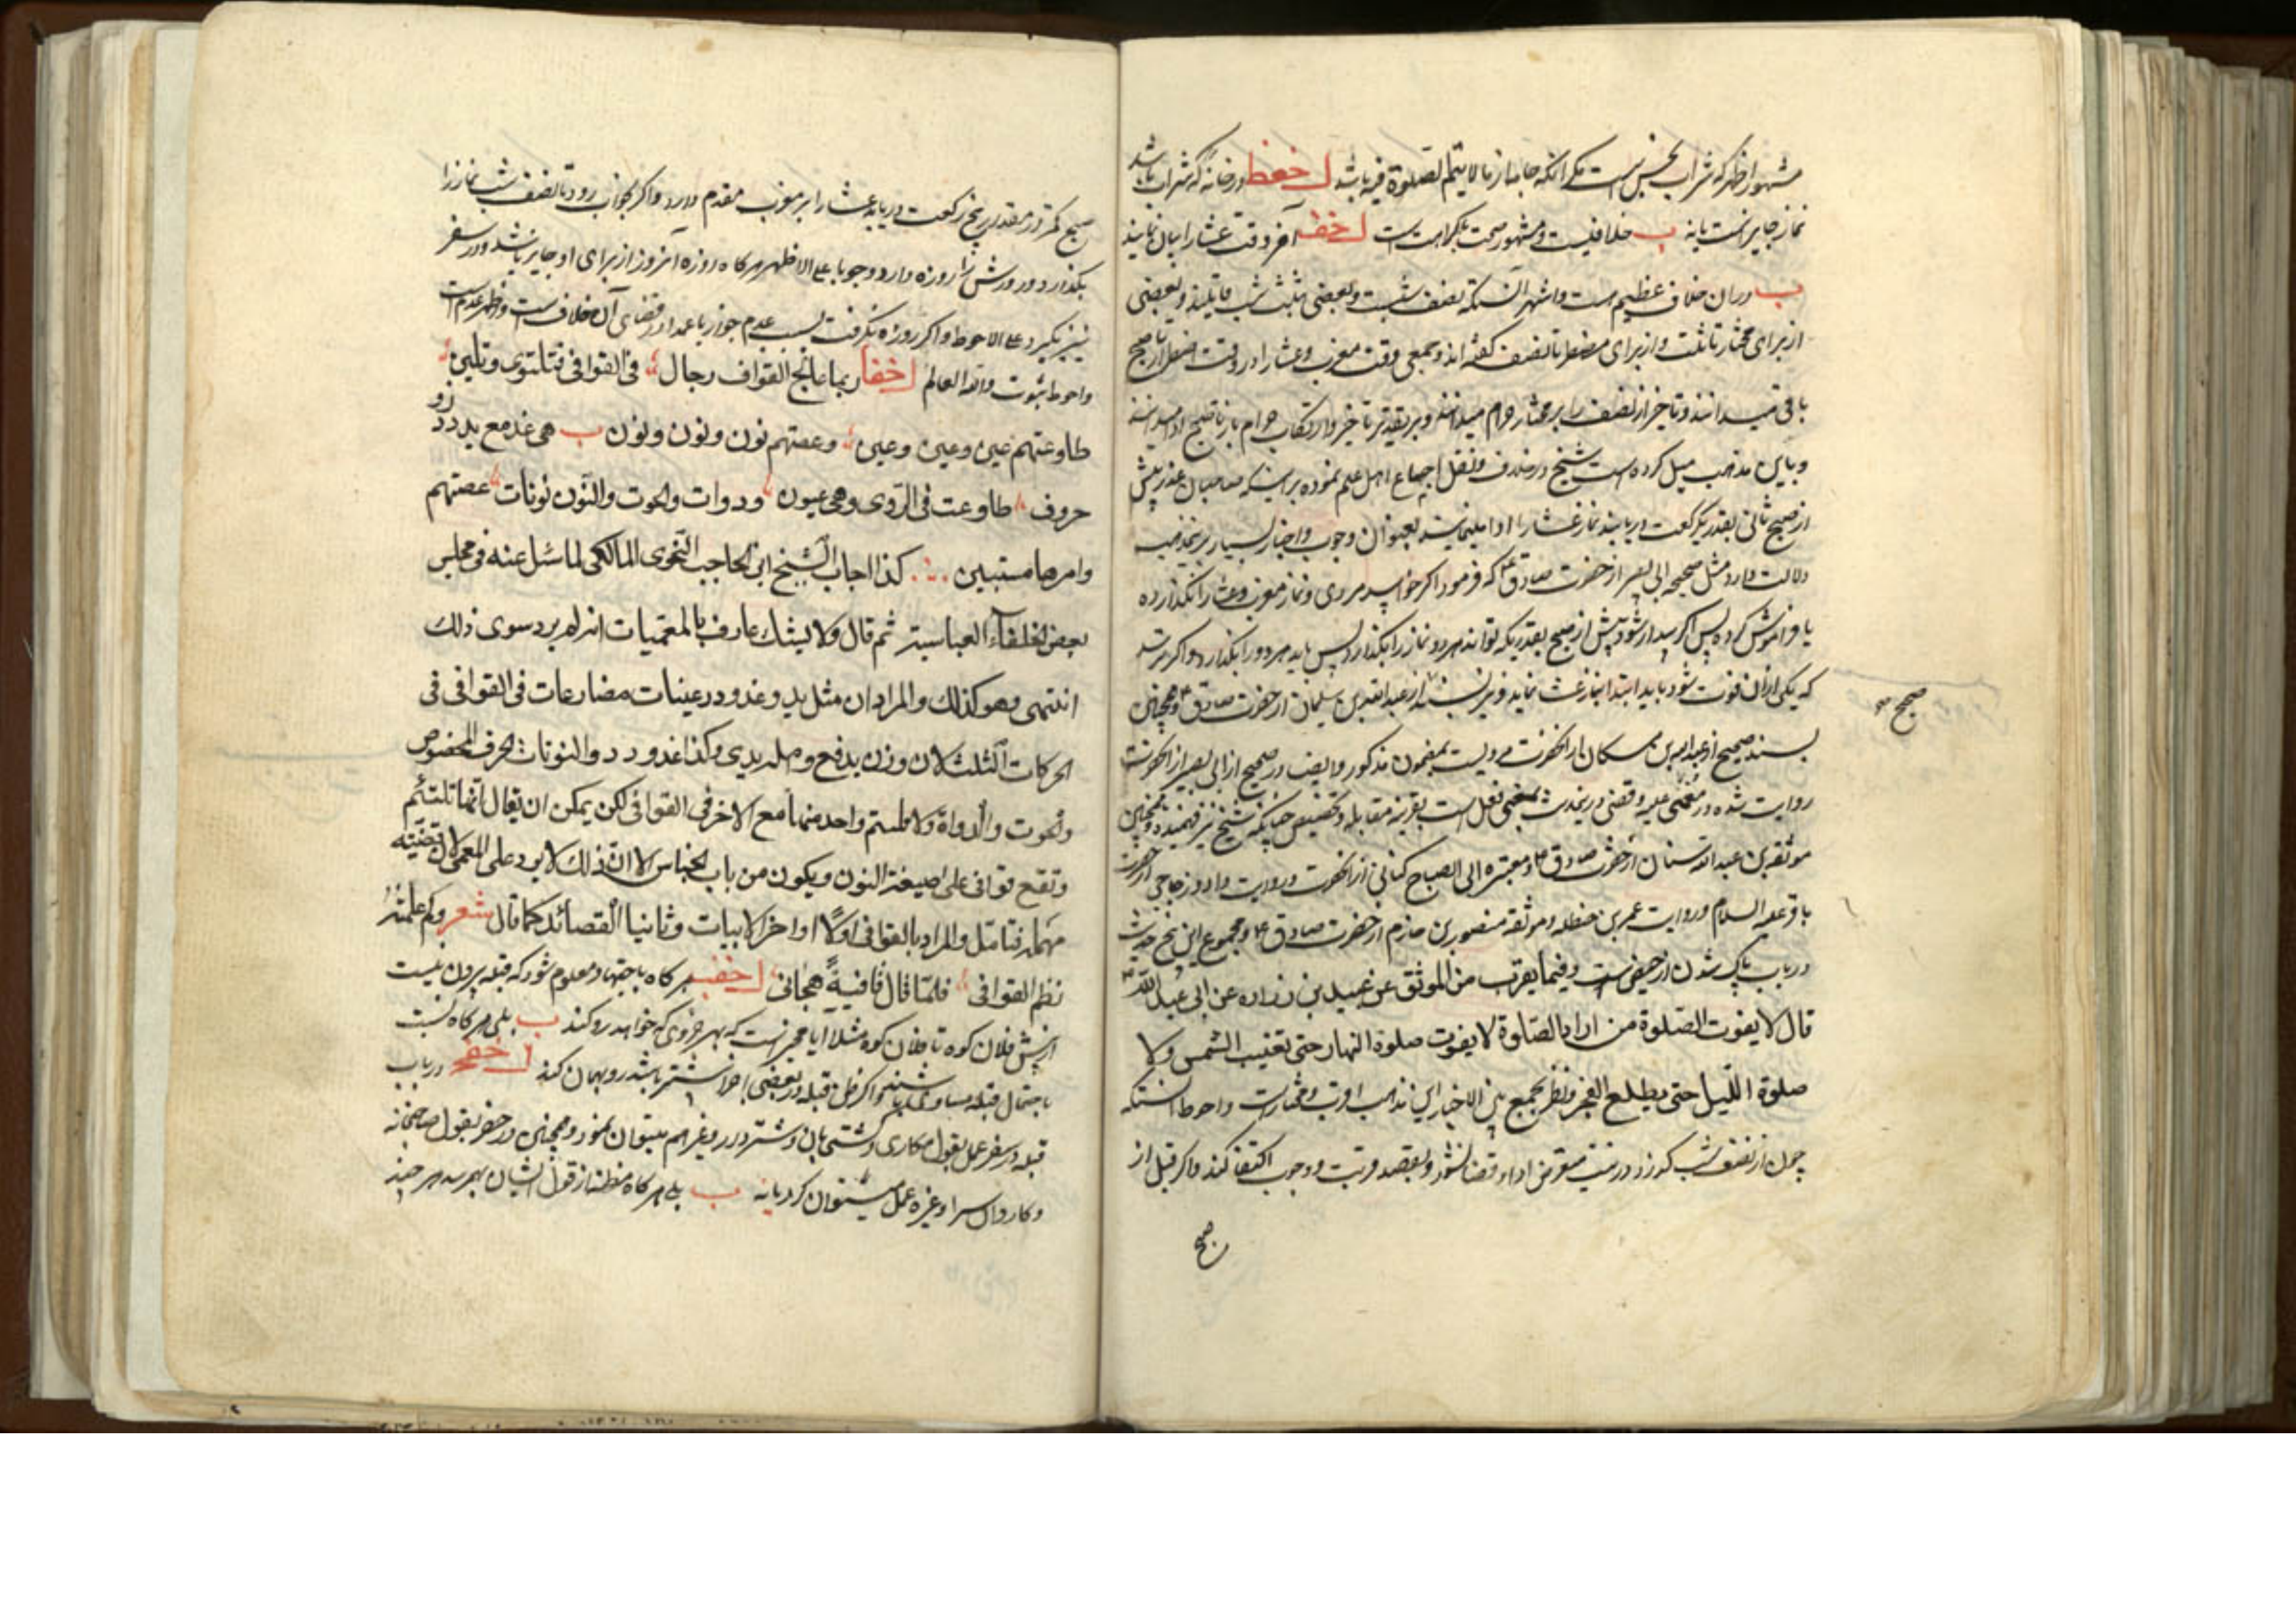 مشهور و اظهر که شراب نجس است مگر آنکه جامه از مالایتم الصلوة فیه باشد ا خفط در خانه که شراب باشد
نماز جایز است یا نه ب خلافیست و مشهور صحت بکراهت است ا خف آخر وقت عشا را بیان نمایند
ب در آن خلاف عظیم است و اشهر آنستکه نصف شبست و بعضی بثلث شب قایلند و بعضی
از برای مختار تا ثلث و از برای مضطر تا نصف گفته اند و جمعی وقت مغرب و عشا را در وقت اضطرار تا صبح
باقی میدانند و تاخیر از نصف را بر مختار حرام میدانند و بر تقدیر تاخیر و ارتکاب حرام باز تا صبح ادا میدانند
و باین مذهب میل کرده است شیخ در خلاف و نقل اجماع اهل علم نموده بر اینکه صاحبان عذر پیش
از صبح ثانی بقدر یک رکعت دریابند نماز عشا را ادا مینمایند بعنوان وجوب و اخبار بسیار بر این مذهب
دلالت دارد مثل صحیحه ابی بصیر از حضرت صادق ع که فرمود اگر خوابید مردی و نماز مغرب و عشا را نگذارده
یا فراموش کرده پس اگر بیدار شود پیش از صبح بقدریکه تواند هر دو نماز را بگذارد پس باید هر دو را بگذارد و اگر ترسد
که یکی از آن فوت شود باید ابتدا بنماز عشا نماید و نیز بسند از عبدالله بن سلیمان از حضرت صادق ع و همچنین
صح
بسند صحیح از عبدالله بن مسکان از آنحضرت مرویست بمضمون مذکور و ایضا در صحیح از ابی بصیر از آنحضرت
روایت شده در مغمی علیه و قضی در بمعنی فعل است بقرینه مقابله و تخصیص چنانکه شیخ نیز فهمیده و همچنین
موثقه بن عبدالله سنان از حضرت صادق ع و معتبره ابی الصباح کنانی از آنحضرت و روایت داود زجاجی از حضرت
باقر علیه السلام و روایت عمر بن حنظله و موثقه منصور بن حازم از حضرت صادق ع و مجموع این پنج حدیث
در باب پاک شدن از حیض است و فیما یقرب من الموثق عن عبید بن زراره عن ابی عبد الله ع
قال لا یفوت الصلوة من اراد الصلوة لا یفوت صلوة النهار حتی تغیب الشمس ولا
صلوة اللیل حتی یطلع الفجر و نظر بجمع بین الاخبار این مذهب اقرب و مختار است و احوط آنستکه
چون از نصف شب گذرد در نیت متعرض ادا و قضا نشود و بقصد قربت و وجوب اکتفا کند و اگر قبل از
صبح
صبح کمتر از مقدار پنج رکعت دریابد عشا را بر مغرب مقدم دارد و اگر بخواب رود تا نصف شب نماز را
بگذارد و روزش را روزه دارد وجوبا علی الاظهر هر گاه روزه آنروز از برای او جایز باشد و در سفر
نیز بگیرد علی الاحوط و اگر روزه نگرفت بسبب عدم جواز یا عمدا در قضای آن خلاف است و اظهر عدم است
و احوط ثبوت والله العالم ا خفا ربما عالج القواف رجال فی القوافی فتلتوی و تلین
طاوعتهم عین وعین وعین وعصتهم نون ونون ونون ب هی غد مع ید ودد ذو
حروف طاوعت فی الروی وهی عیون ودوات والحوت والنون نونات عصتهم
وامرها مستبین کذا اجاب الشیخ ابن الحاجب النحوی المالکی لما سئل عنه فی مجلس
بعض الخلفاء العباسیة ثم قال ولا یشک عارف بالمعمیات انه لم یرد سوی ذلک
انتهی وهو کذلک والمراد ان مثل ید وغد ودد عینات مضارعات فی القوافی فی
الحرکات الثلث لان وزن ید فع و اصله یدی وکذا غد و دد والنونات الحرف المخصوص
والحوت والدواة ولا یلتئم واحد منها مع الآخر فی القوافی لکن یمکن ان یقال انها تلتئم
وتقع قوافی علی صیغة النون ویکون من باب الجناس الا ان ذلک لا یرد علی المعمی لان تخفیه
مهما فتامل والمراد بالقوافی اولا اواخر الابیات وثانیا القصائد کما قال شعر وکم علمته
نظم القوافی فلما قال قافیة هجانی ا خفب هر گاه باجتهاد معلوم شود که قبله بیرون نیست
از پیش فلان کوه تا فلان کوه مثلا آیا مخیر است که بهر جزوی که خواهد رو کند ب بلی هر گاه نسبت
باحتمال قبله مساوی باشند و اگر ظن قبله در بعضی اجزا بیشتر باشد رو بهمان کند ا خفج در باب
قبله در سفر عمل بقول مکاری و کشتی بان و شتردار و غیر هم میتوان نمود و همچنین در حضر بقول صاحبخانه
و کاروان سرا و غیره عمل میتوان کرد یا نه ب بلی هر گاه مظنه از قول ایشان بهمرسد هر چند